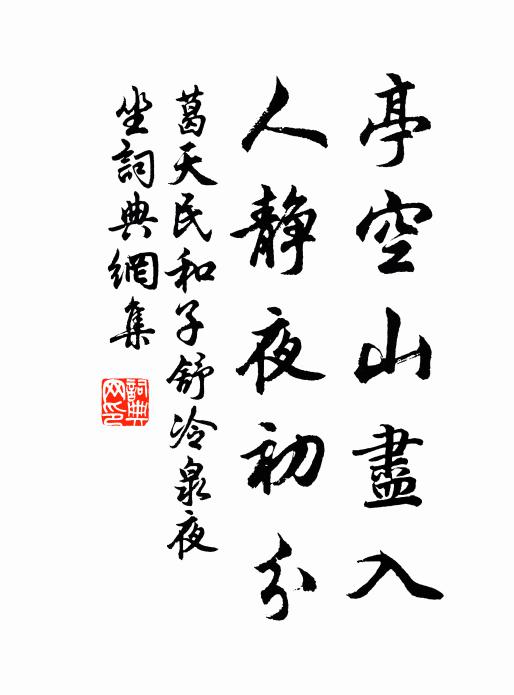 亭空山盡入
人靜夜初分
葛天民和子舒冷泉夜
坐詞典網集
詞典
网印